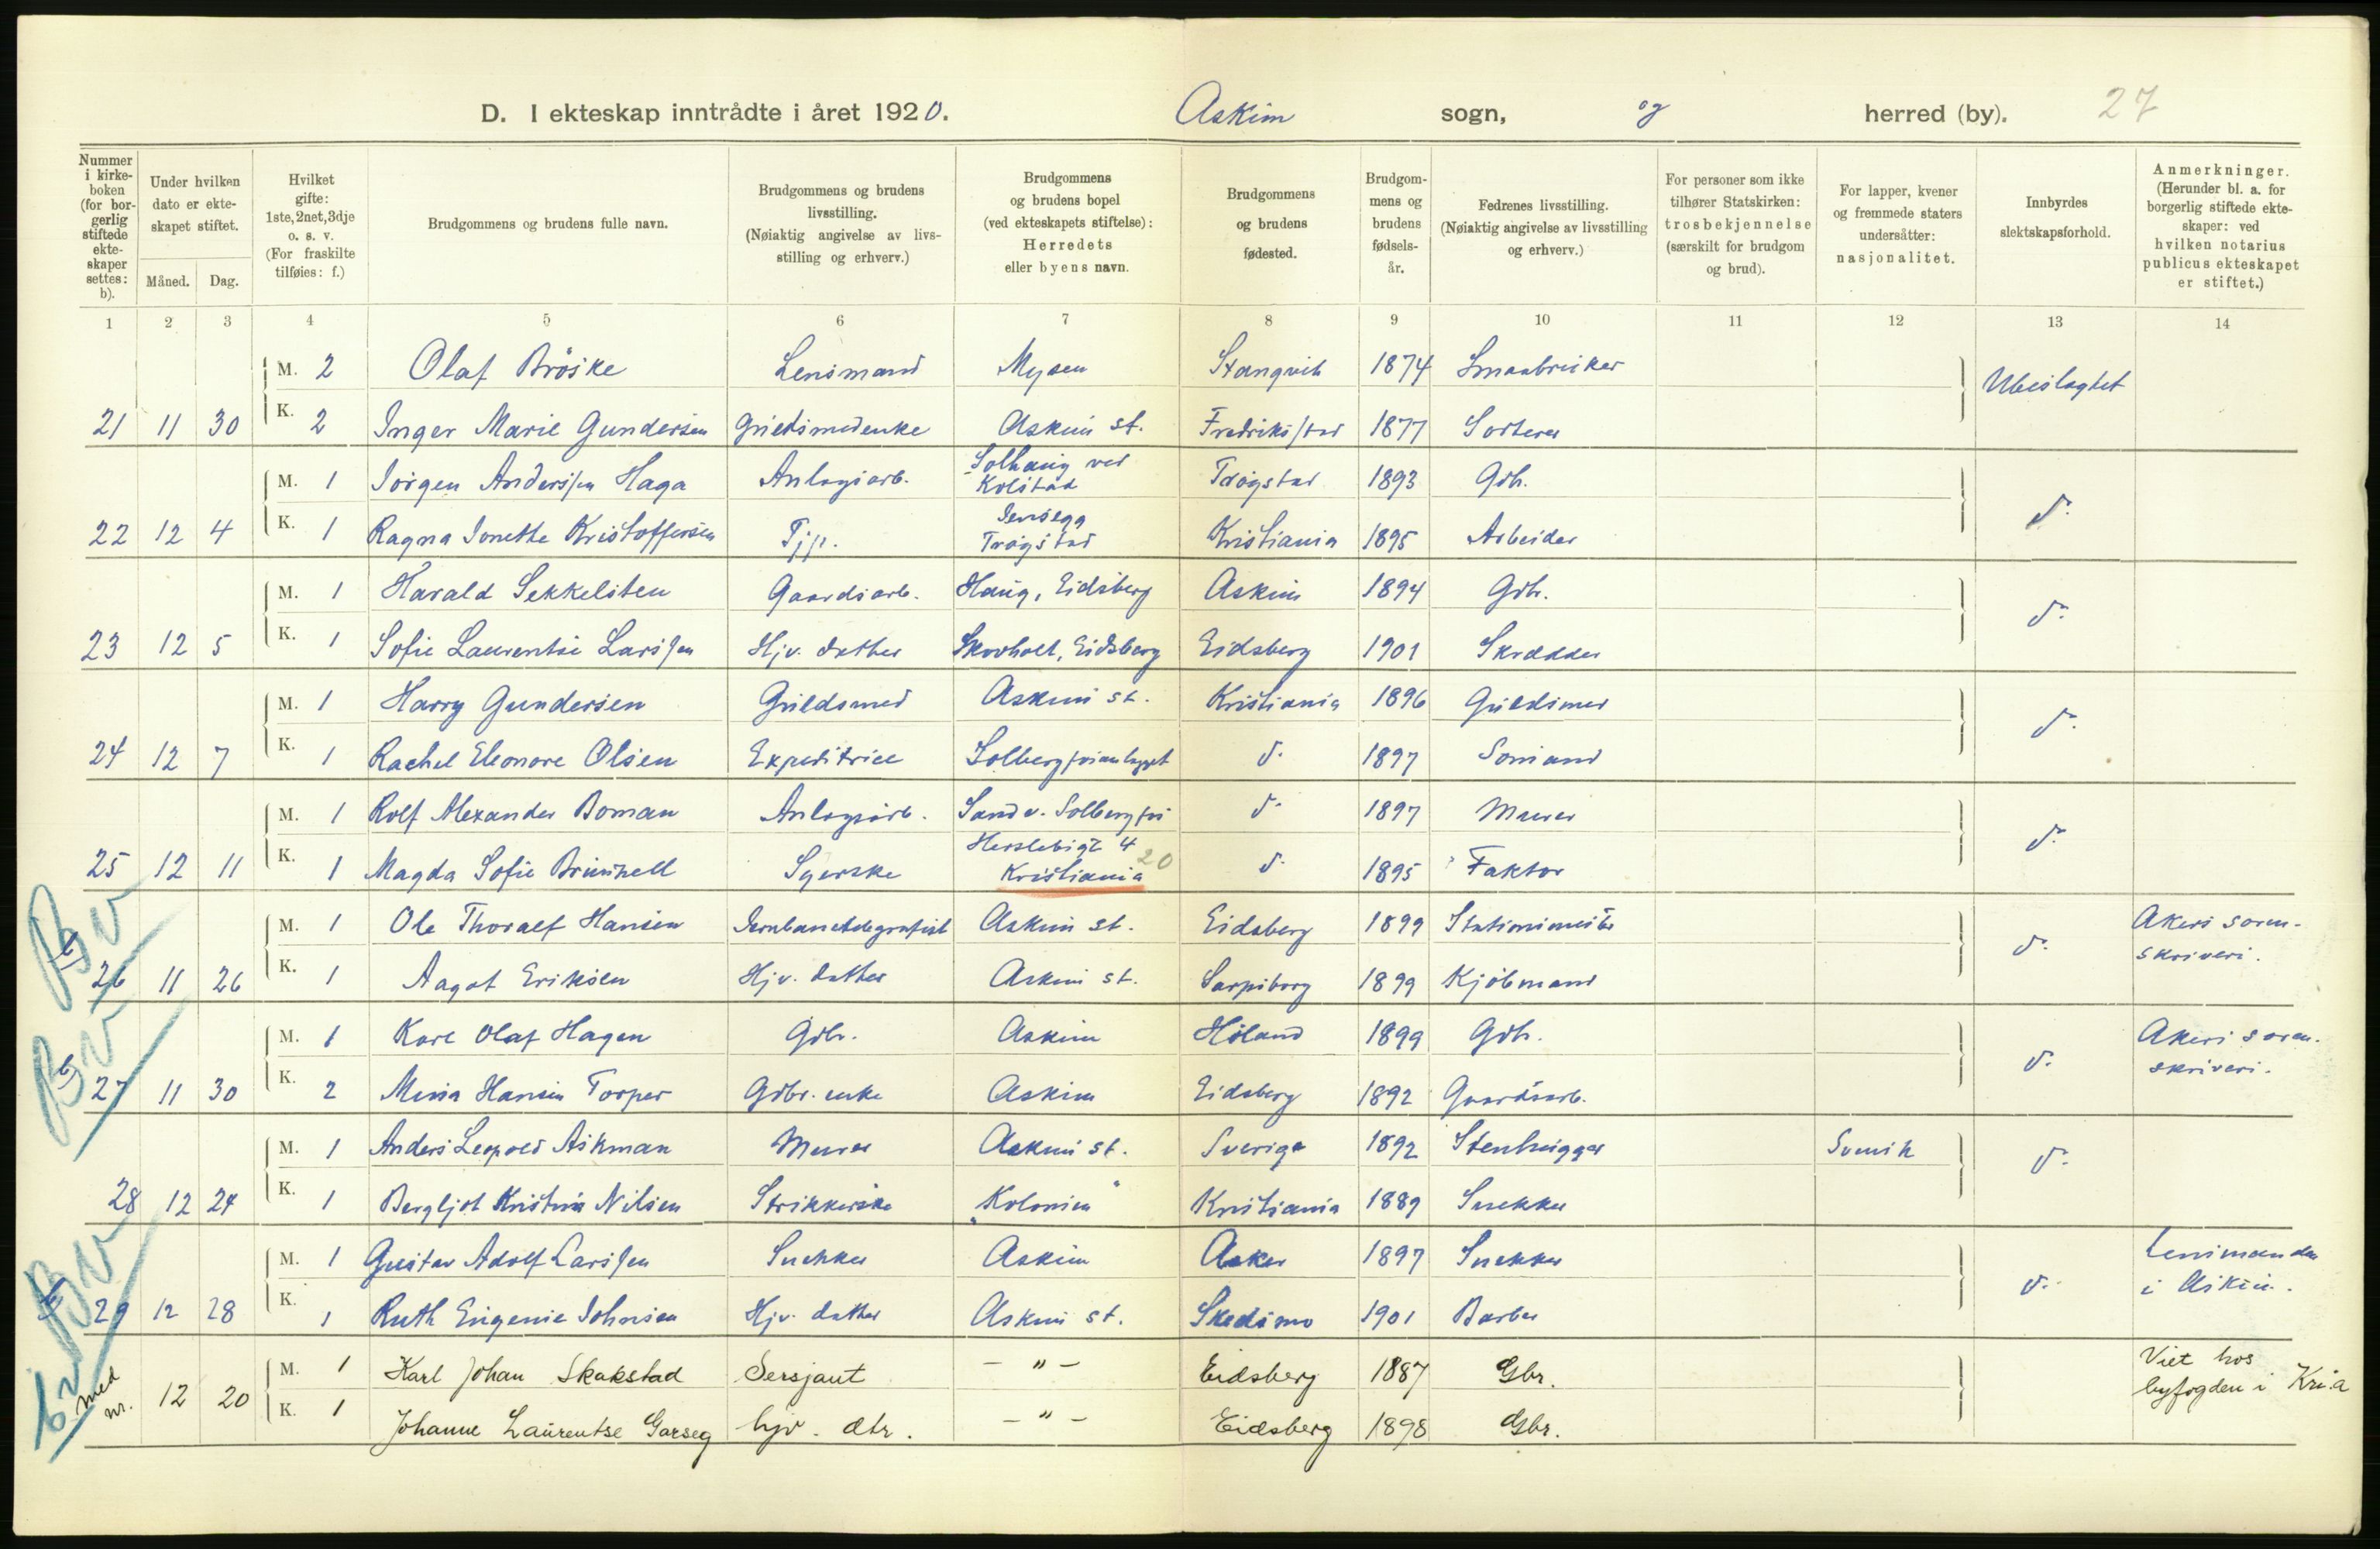 D. I ekteskap inntrådte i året 1920. Askim sogn, og herred (by). 27
Nummer i kirke-boken (for bor-gerlig stiftede ekte-skaper settes: b).
Under hvilken dato er ekte-skapet stiftet.
Måned. Dag.
Hvilket gifte: 1ste, 2net, 3dje o. s. v. (For fraskilte tilføies: f.)
Brudgommens og brudens fulle navn.
Brudgommens og brudens livsstilling. (Nøiaktig angivelse av livs-stilling og erhverv.)
Brudgommens og brudens bopel (ved ekteskapets stiftelse): Herredets eller byens navn.
Brudgommens og brudens fødested.
Brudgom-mens og brudens fødsels-år.
Fedrenes livsstilling. (Nøiaktig angivelse av livsstilling og erhverv.)
For personer som ikke tilhører Statskirken: trosbekjennelse (særskilt for brudgom og brud).
For lapper, kvener og fremmede staters undersåtter: nasjonalitet.
Innbyrdes slektskapsforhold.
Anmerkninger. (Herunder bl. a. for borgerlig stiftede ekte-skaper: ved hvilken notarius publicus ekteskapet er stiftet.)
1 2 3 4 5 6 7 8 9 10 11 12 13 14
M. 2 Olaf Bröske Lensmand Mysen Stangvik 1874 Smaabruker Ubeslagtet
21 11 30 K. 2 Inger Marie Gundersen Guldsmedenke Askim st. Fredrikstad 1877 Sorterer
M. 1 Jörgen Anderssen Haga Anlægsarb. Solhaug ved Kolstad Trögstad 1893 Gbr. d.
22 12 4 K. 1 Ragna Jonette Kristoffersen Tjp. Trögstad Kristiania 1895 Arbeider
M. 1 Harald Sekkelsten Gaardsarb. Haug, Eidsberg Askim 1894 Gbr. d.
23 12 5 K. 1 Sofie Laurentse Larssen Hjv. datter Skovholt, Eidsberg Eidsberg 1901 Skrædder
M. 1 Harry Gundersen Guldsmed Askim st. Kristiania 1896 Guldsmed d.
24 12 7 K. 1 Rachel Eleonore Olsen Expeditrice Solbergfosanlægget d. 1897 Sömand
M. 1 Rolf Alexander Boman Anlægsarb. Sand v. Solbergfos d. 1897 Murer d.
25 12 11 K. 1 Magda Sofie Brunnell Syerske Herslebsgt 4 Kristiania 20 d. 1895 Faktor
M. 1 Ole Thoralf Hansen Jernbanetelegrafist Askim st. Eidsberg 1899 Stationsmester d. Akers soren-skriveri.
b 26 11 26 K. 1 Aagot Eriksen Hjv. datter Askim st. Sarpsborg 1899 Kjöbmand
M. 1 Kare Olaf Hagen Gbr. Askim Höland 1899 Gbr. d. Akers soren-skriveri.
b 27 11 30 K. 2 Mina Hansen Torper Gbr. enke Askim Eidsberg 1892 Gaardsarb.
M. 1 Anders Leopold Askman Murer Askim st. Sverige 1892 Stenhugger Svensk d.
28 12 24 K. 1 Bergljot Kristina Nilsen Strikkerske "Kolonien" Kristiania 1889 Snekker
M. 1 Gustav Adolf Larssen Snekker Askim Asker 1897 Snekker d. Lensmanden i Askim.
29 12 28 K. 1 Ruth Eugenie Johnsen Hjv. datter Askim st. Skedsmo 1901 Barber
M. 1 Karl Johan Skakstad Sersjant — " — Eidsberg 1887 Gbr. Viet hos byfogden i Kr.a
med nr. 12 20 K. 1 Johanne Laurentse Garseg hjv. dtr. — " — Eidsberg 1898 Gbr.